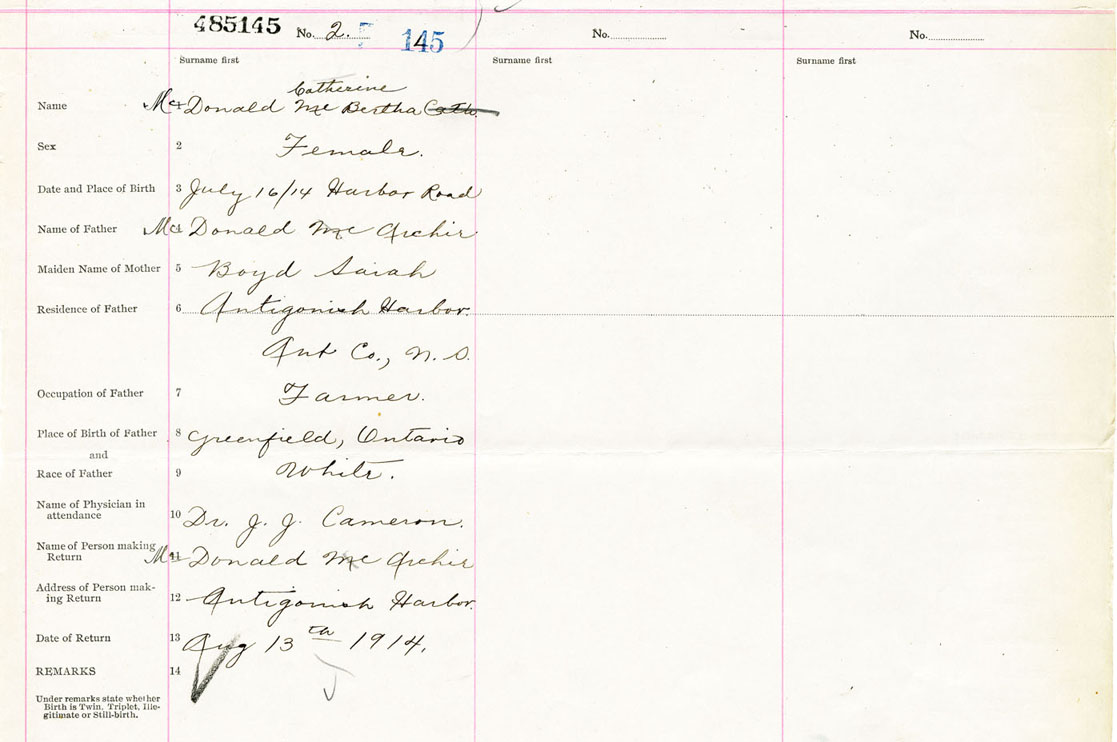 485145 No. 2. 145 No. No.
Surname first Surname first Surname first
Catherine
Name Mc Donald Mc Bertha Cath.
Sex 2 Female.
Date and Place of Birth 3 July 16/14 Harbor Road
Name of Father Mc Donald Mc Archie
Maiden Name of Mother 5 Boyd Sarah
Residence of Father 6 Antigonish Harbor.
Ant Co., N. S.
Occupation of Father 7 Farmer.
Place of Birth of Father 8 Greenfield, Ontario
and
Race of Father 9 White.
Name of Physician in
attendance 10 Dr. J. J. Cameron.
Name of Person making
Return Mc 11 Donald Mc Archie
Address of Person mak-
ing Return 12 Antigonish Harbor.
Date of Return 13 Aug 13th 1914.
REMARKS 14
Under remarks state whether
Birth is Twin, Triplet, Ille-
gitimate or Still-birth.